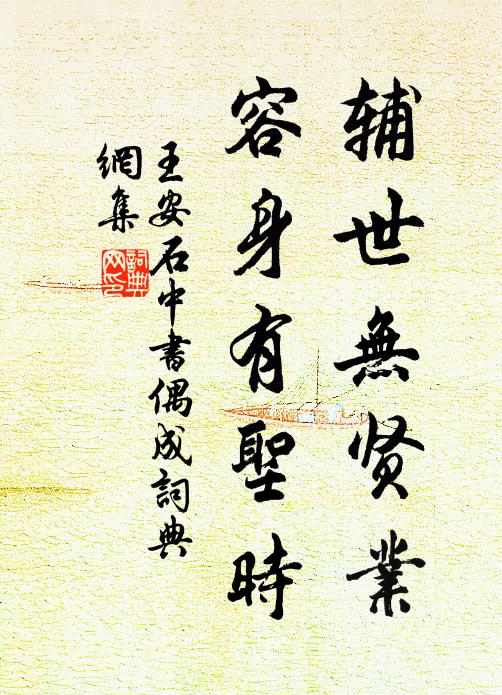 辅世無贤業
容身有聖時
王安石中書偶成詞典
網集
詞典
网印